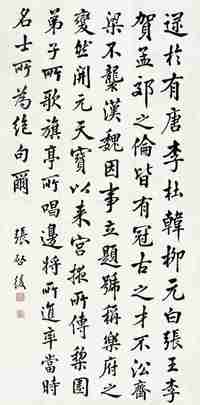 逮於有唐李杜韓柳元白張王李
賀孟郊之倫皆有冠古之才不沿齊
梁不襲漢魏因事立題號稱樂府之
變然開元天寶以來宮掖所傳梨園
弟子所歌旗亭所唱邊將所進率當時
名士所為絕句爾
張啟後